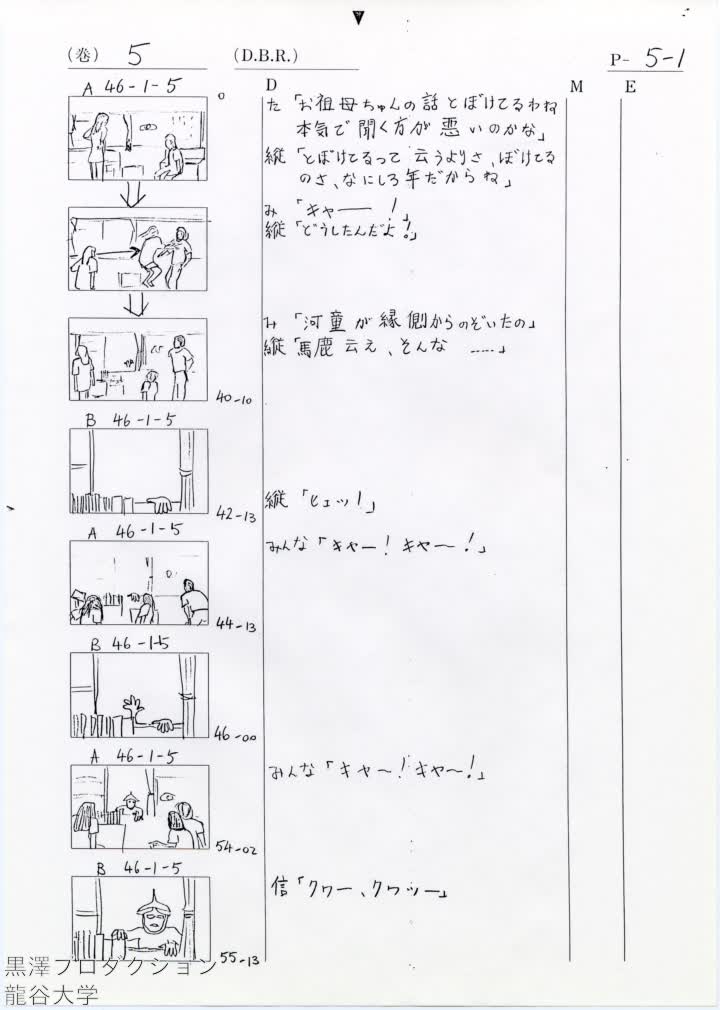 (巻) 5 (D.B.R.) P- 5-1
D M E
A 46-1-5 0
た「お祖母ちゃんの話とぼけてるわね
本気で聞く方が悪いのかな」
縦「とぼけてるって云うよりさ、ぼけてる
のさ、なにしろ年だからね」
み「キャー!」
縦「どうしたんだよ!」
み「河童が縁側からのぞいたの」
縦「馬鹿云え、そんな ……」
40-10
B 46-1-5
縦「ヒェッ!」
42-13
A 46-1-5
みんな「キャー!キャ〜!」
44-13
B 46-1-5
46-00
A 46-1-5
みんな「キャ〜!キャ〜!」
54-02
B 46-1-5
信「クワー、クワッー」
55-13
黒澤プロダクション
龍谷大学